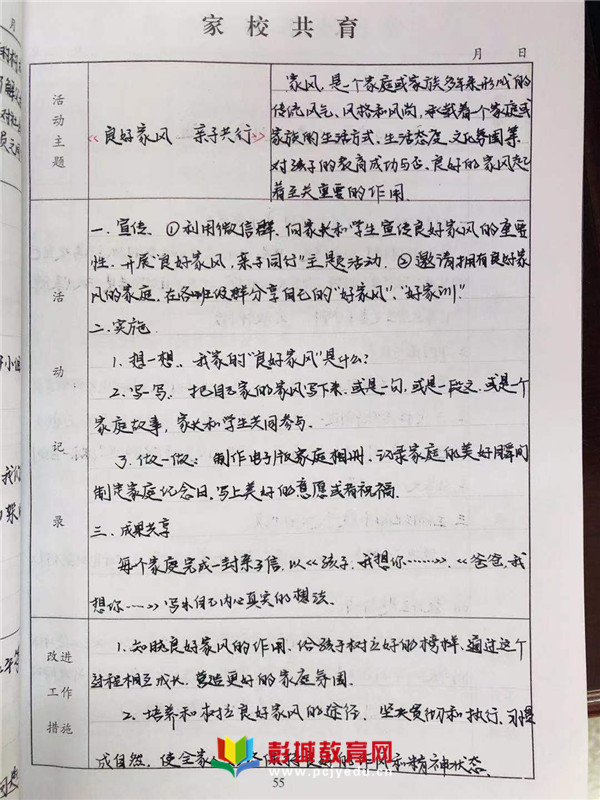 家校共育
月 日
活动主题
《良好家风 亲子共行》
家风,是一个家庭或家族多年来形成的
传统风气、风格和风尚,承载着一个家庭或
家族的生活方式、生活态度、文化氛围等.
对孩子的教育成功与否、良好的家风起
着至关重要的作用.
活动记录
一.宣传、①利用微信群,向家长和学生宣传良好家风的重要
性.开展"良好家风,亲子同行"主题活动.②邀请拥有良好家
风的家庭.在各班级群分享自己的"好家风"、"好家训".
二.实施.
1.想一想、我家的"良好家风"是什么?
2.写一写: 把自己家的家风写下来.或是一句,或是一段文.或是个
家庭故事,家长和学生共同参与.
3.做一做: 制作电子版家庭相册.记录家庭的美好瞬间
制定家庭纪念日.写上美好的意愿或者祝福.
三.成果共享
每个家庭完成一封亲子信,以《孩子,我想你……》、《爸爸,我
想你……》写出自己内心真实的想法.
改进工作措施
1.知晓良好家风的作用.给孩子树立好的榜样.通过这个
过程相互成长.营造更好的家庭氛围.
2.培养和树立良好家风的途径,坚决贯彻和执行.习惯
成自然.使全家 保持良好的 和精神状态.
彭城教育网
www.pcjyedu.cn
55